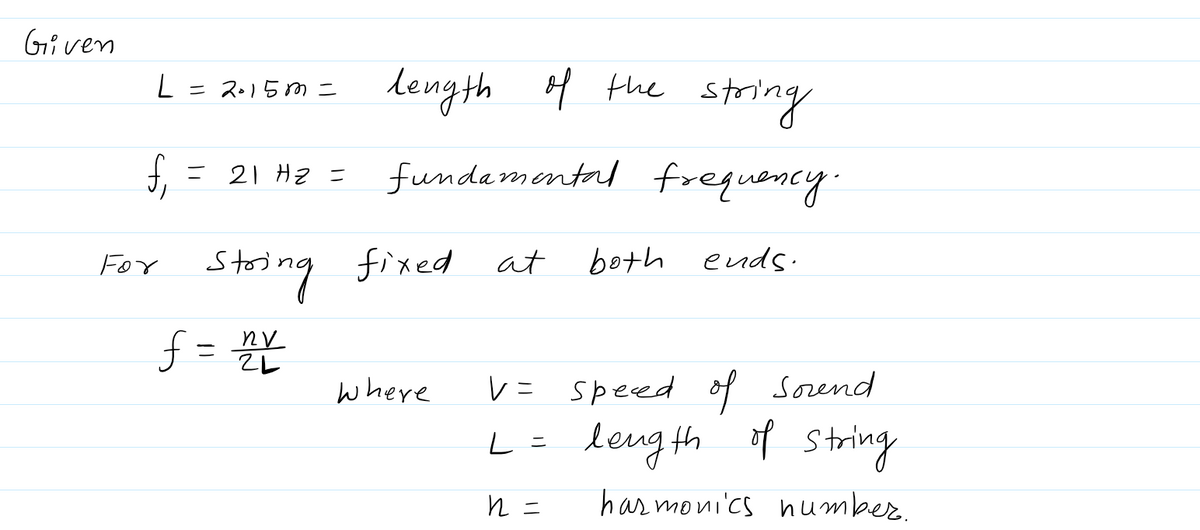 Given
L = 2.15m = length of the string
f₁ = 21 Hz = fundamental frequency.
For string fixed at both ends.
f = nv/2L
where v = speed of sound
L = length of string
n = harmonics number.